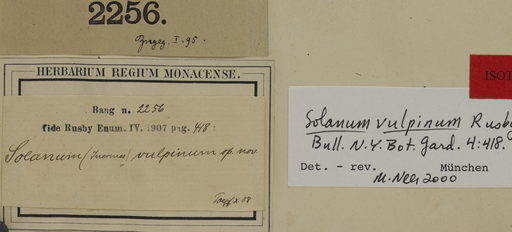 2256.
I. 95.
HERBARIUM REGIUM MONACENSE.
Bang n. 2256
fide Rusby Enum. IV. 1907 pag. 418:
Solanum (Inermia) vulpinum sp. nov
X. 08
ISOT
Solanum vulpinum Rusby
Bull. N.Y. Bot. Gard. 4:418.
Det. - rev. München
M. Nee 2000